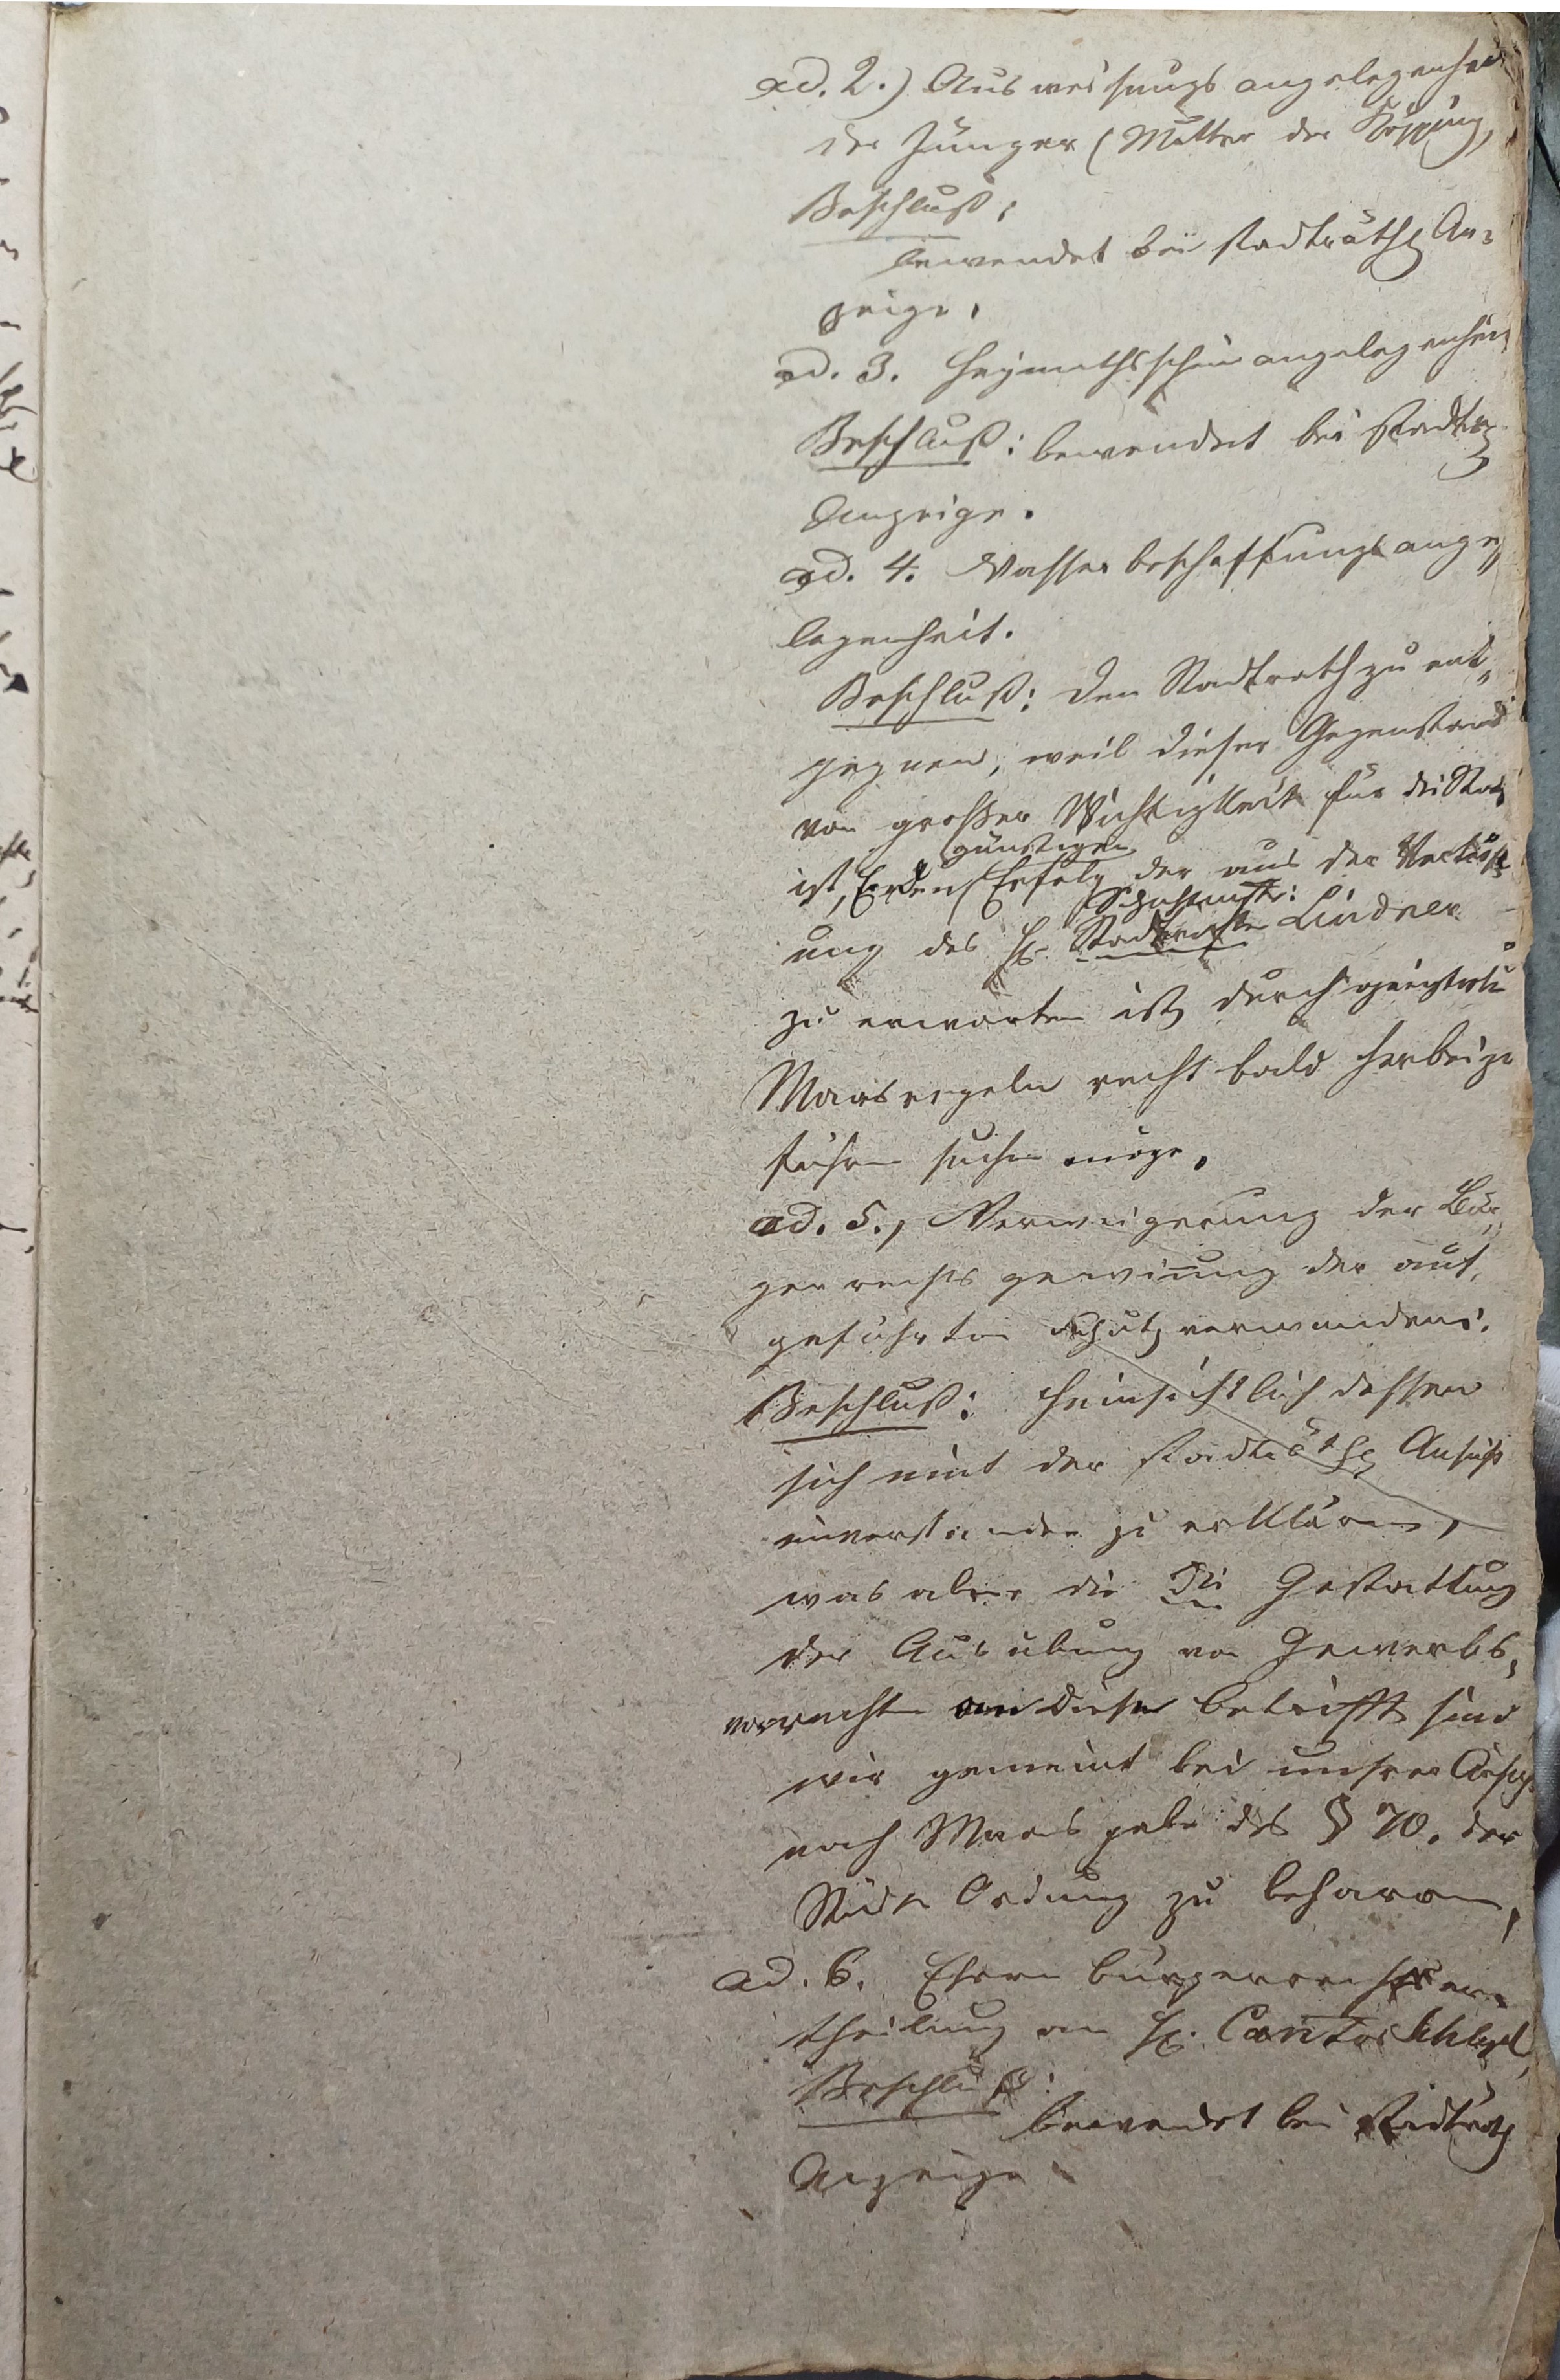 ad. 2.) Ausweisungsangelegenheit
der Jünger (Mutter der Köpping,
Beschluß:
bewendet bei stadträthl An=
zeige.
ad. 3. Heymathsscheinangelegenheit
Beschluß: bewendet bei stadtr
Anzeige.
ad. 4. Wasserbeschaffungsange„
legenheit.
Beschluß: den Stadtrath zu ent„
gegnen, weil dieser Gegenstand
von großer Wichtigkeit für die Stadt
günstigen
ist, Er den Erfolg der aus der
Schulmstr:
ung des H. Stadtrath Lindner
zu erwarten ist durch geeignete
Maasregeln recht bald herbeizu
führen suchen möge,
ad. 5., Verweigerung der Bür„
gerrechtsgewinung der auf„
geführten Schutzverwandten.
Beschluß: Heinsichtlich dessen
sich mit der stadträthl Ansicht
einverstanden zu erklären,
was aber die die Gestattung
der Ausübung von Gewerbs„
vorrechten an diese betrifft sind
wir gemeint bei unsrer Ansicht
nach Maasgabe des § 70. der
Städte Ordnung zu beharren,
ad. 6. Ehrenbürgerrechtser=
theilung an H. Cantor Schlegel,
Beschluß:
bewendet bei stadträthl
Anzeige